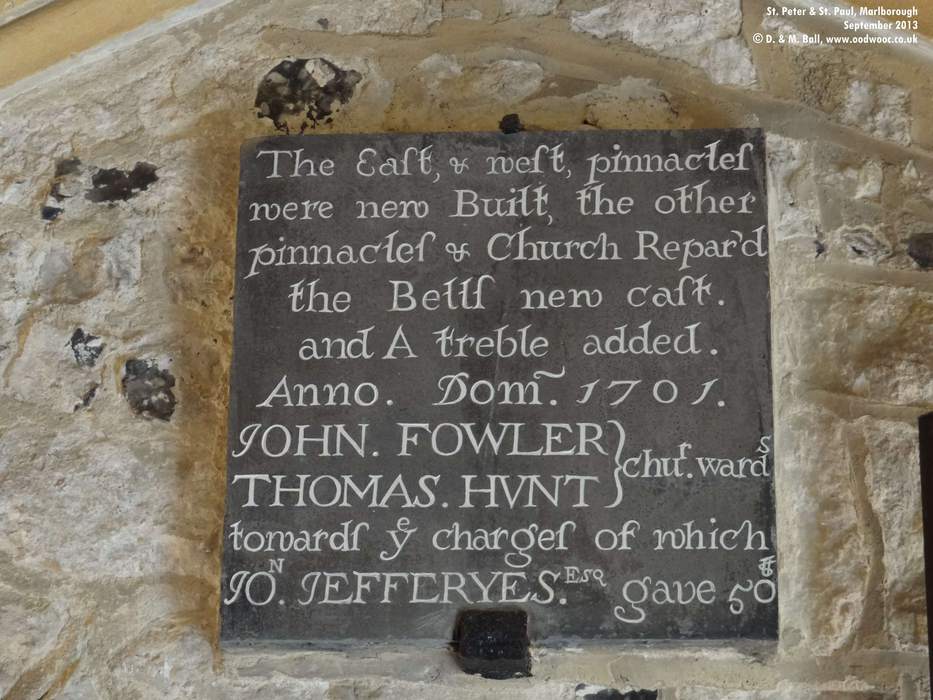 St. Peter & St. Paul, Marlborough
September 2013
© D. & M. Ball, www.oodwooc.co.uk
The Eaſt, & weſt, pinnacleſ
were new Built, the other
pinnacleſ & Church Repar'd
the Bellſ new caſt.
and A treble added.
Anno. Dom̃. 1701.
JOHN. FOWLER
THOMAS. HVNT } chur. wards
towardſ ye chargeſ of which
JON. JEFFERYES. Esq gave 50